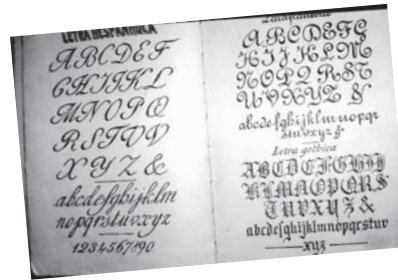 LETRA HESPANHOLA
ABCDEF
GHIJKL
MNOPQ
RSTUV
XYZ &
abcdefghijklm
nopqrstuvxyz
1234567890
ABCDEFG
HIJKLM
NOPQRST
UVXYZ &
abcdefghijklmnopqr
stuvxyz &
Letra gothica
ABCDEFGHIJ
KLMNOPQRS
TUVXYZ &
abcdefghijklmnopqrstuv
xyz